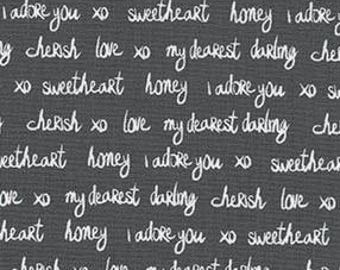 i adore you xo sweetheart honey i adore you
cherish love xo my dearest darling
xo sweetheart honey i adore you xo s
cherish xo love my dearest darling ch
weetheart honey i adore you xo sweethear
ove xo my dearest darling cherish love xo
heart honey i adore you xo sweetheart
cherish xo love my dearest darling